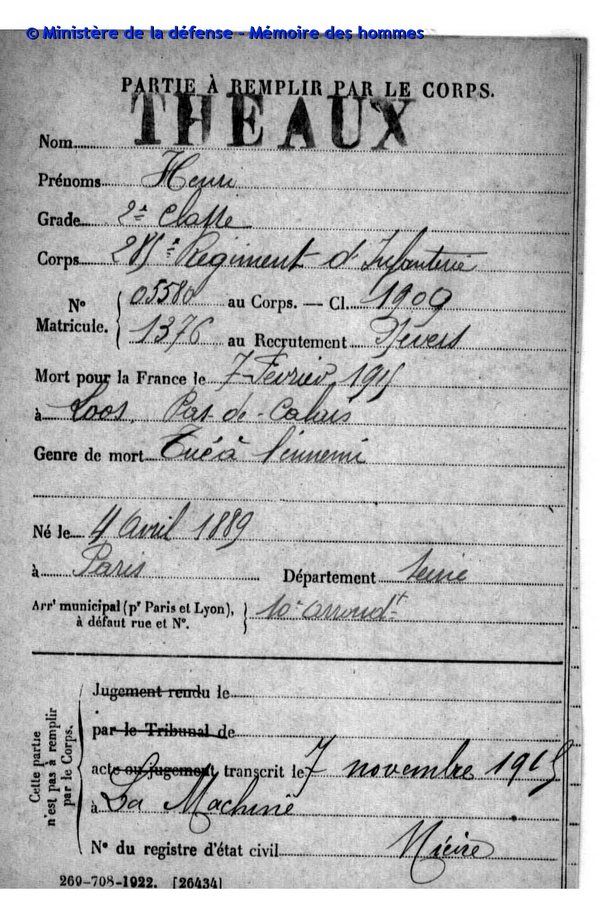 © Ministère de la défense - Mémoire des hommes
PARTIE À REMPLIR PAR LE CORPS.
Nom THEAUX
Prénoms Henri
Grade 2e Classe
Corps 285e Régiment d'Infanterie
N° Matricule. 05580 au Corps. — Cl. 1909
1376 au Recrutement Nevers
Mort pour la France le 7 Février 1915
à Loos Pas-de-Calais
Genre de mort Tué à l'ennemi
Né le 4 Avril 1889
à Paris Département Seine
Arrt municipal (pr Paris et Lyon), 10e arrondt
à défaut rue et N°.
Cette partie n'est pas à remplir par le Corps.
Jugement rendu le
par le Tribunal de
acte ou jugement transcrit le 7 novembre 1915
à La Machine
N° du registre d'état civil Nièvre
269-708-1922. [26434]